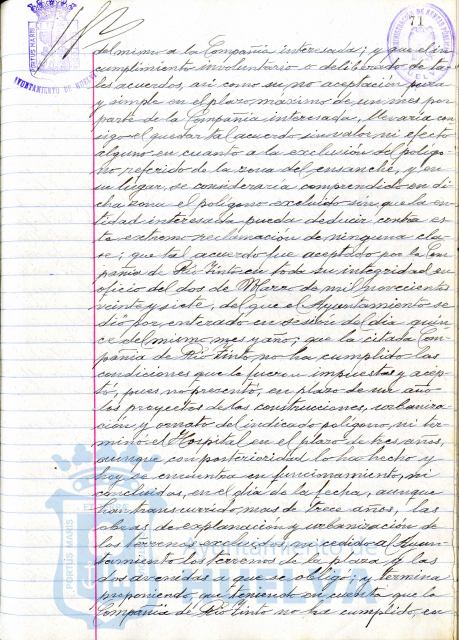 71
AYUNTAMIENTO DE HUELVA
del mismo a la Compañía interesada; y que el in
cumplimiento involuntario o deliberado de ta
les acuerdos, así como su no aceptación pura
y simple en el plazo máximo de un mes por
parte de la Compañía interesada, llevaría con
sigo el quedar tal acuerdo sin valor ni efecto
alguno en cuanto a la exclusión del polígo
no referido de la zona del ensanche, y en
su lugar, se consideraría comprendido en di
cha zona el polígono excluido sin que la en
tidad interesada pueda deducir contra es
te extremo reclamación de ninguna cla
se; que tal acuerdo fue aceptado por la Com
pañía de Rio Tinto en toda su integridad en
oficio del dos de Marzo de mil novecientos
veinte y siete, del que el Ayuntamiento se
dió por enterado en sesión del día quin
ce del mismo mes y año; que la citada Com
pañía de Rio Tinto no ha cumplido las
condiciones que le fueron impuestas y acep
tó, pues no presentó, en plazo de un año
los proyectos de las construcciones, urbaniza
ción y ornato del indicado polígono, ni ter
minó el Hospital en el plazo de tres años,
aunque con posterioridad lo ha hecho y
hoy se encuentra en funcionamiento, ni
concluidas, en el día de la fecha, aunque
han transcurrido mas de trece años, las
obras de explanación y urbanización de
los terrenos excluidos, ni cedido al Ayun
tamiento los terrenos de la plaza y las
dos avenidas a que se obligó; y termina
proponiendo, que teniendo en cuenta que la
Compañía de Rio Tinto no ha cumplido, en
PORTUS MARIS
Ayuntamiento de
HUELVA